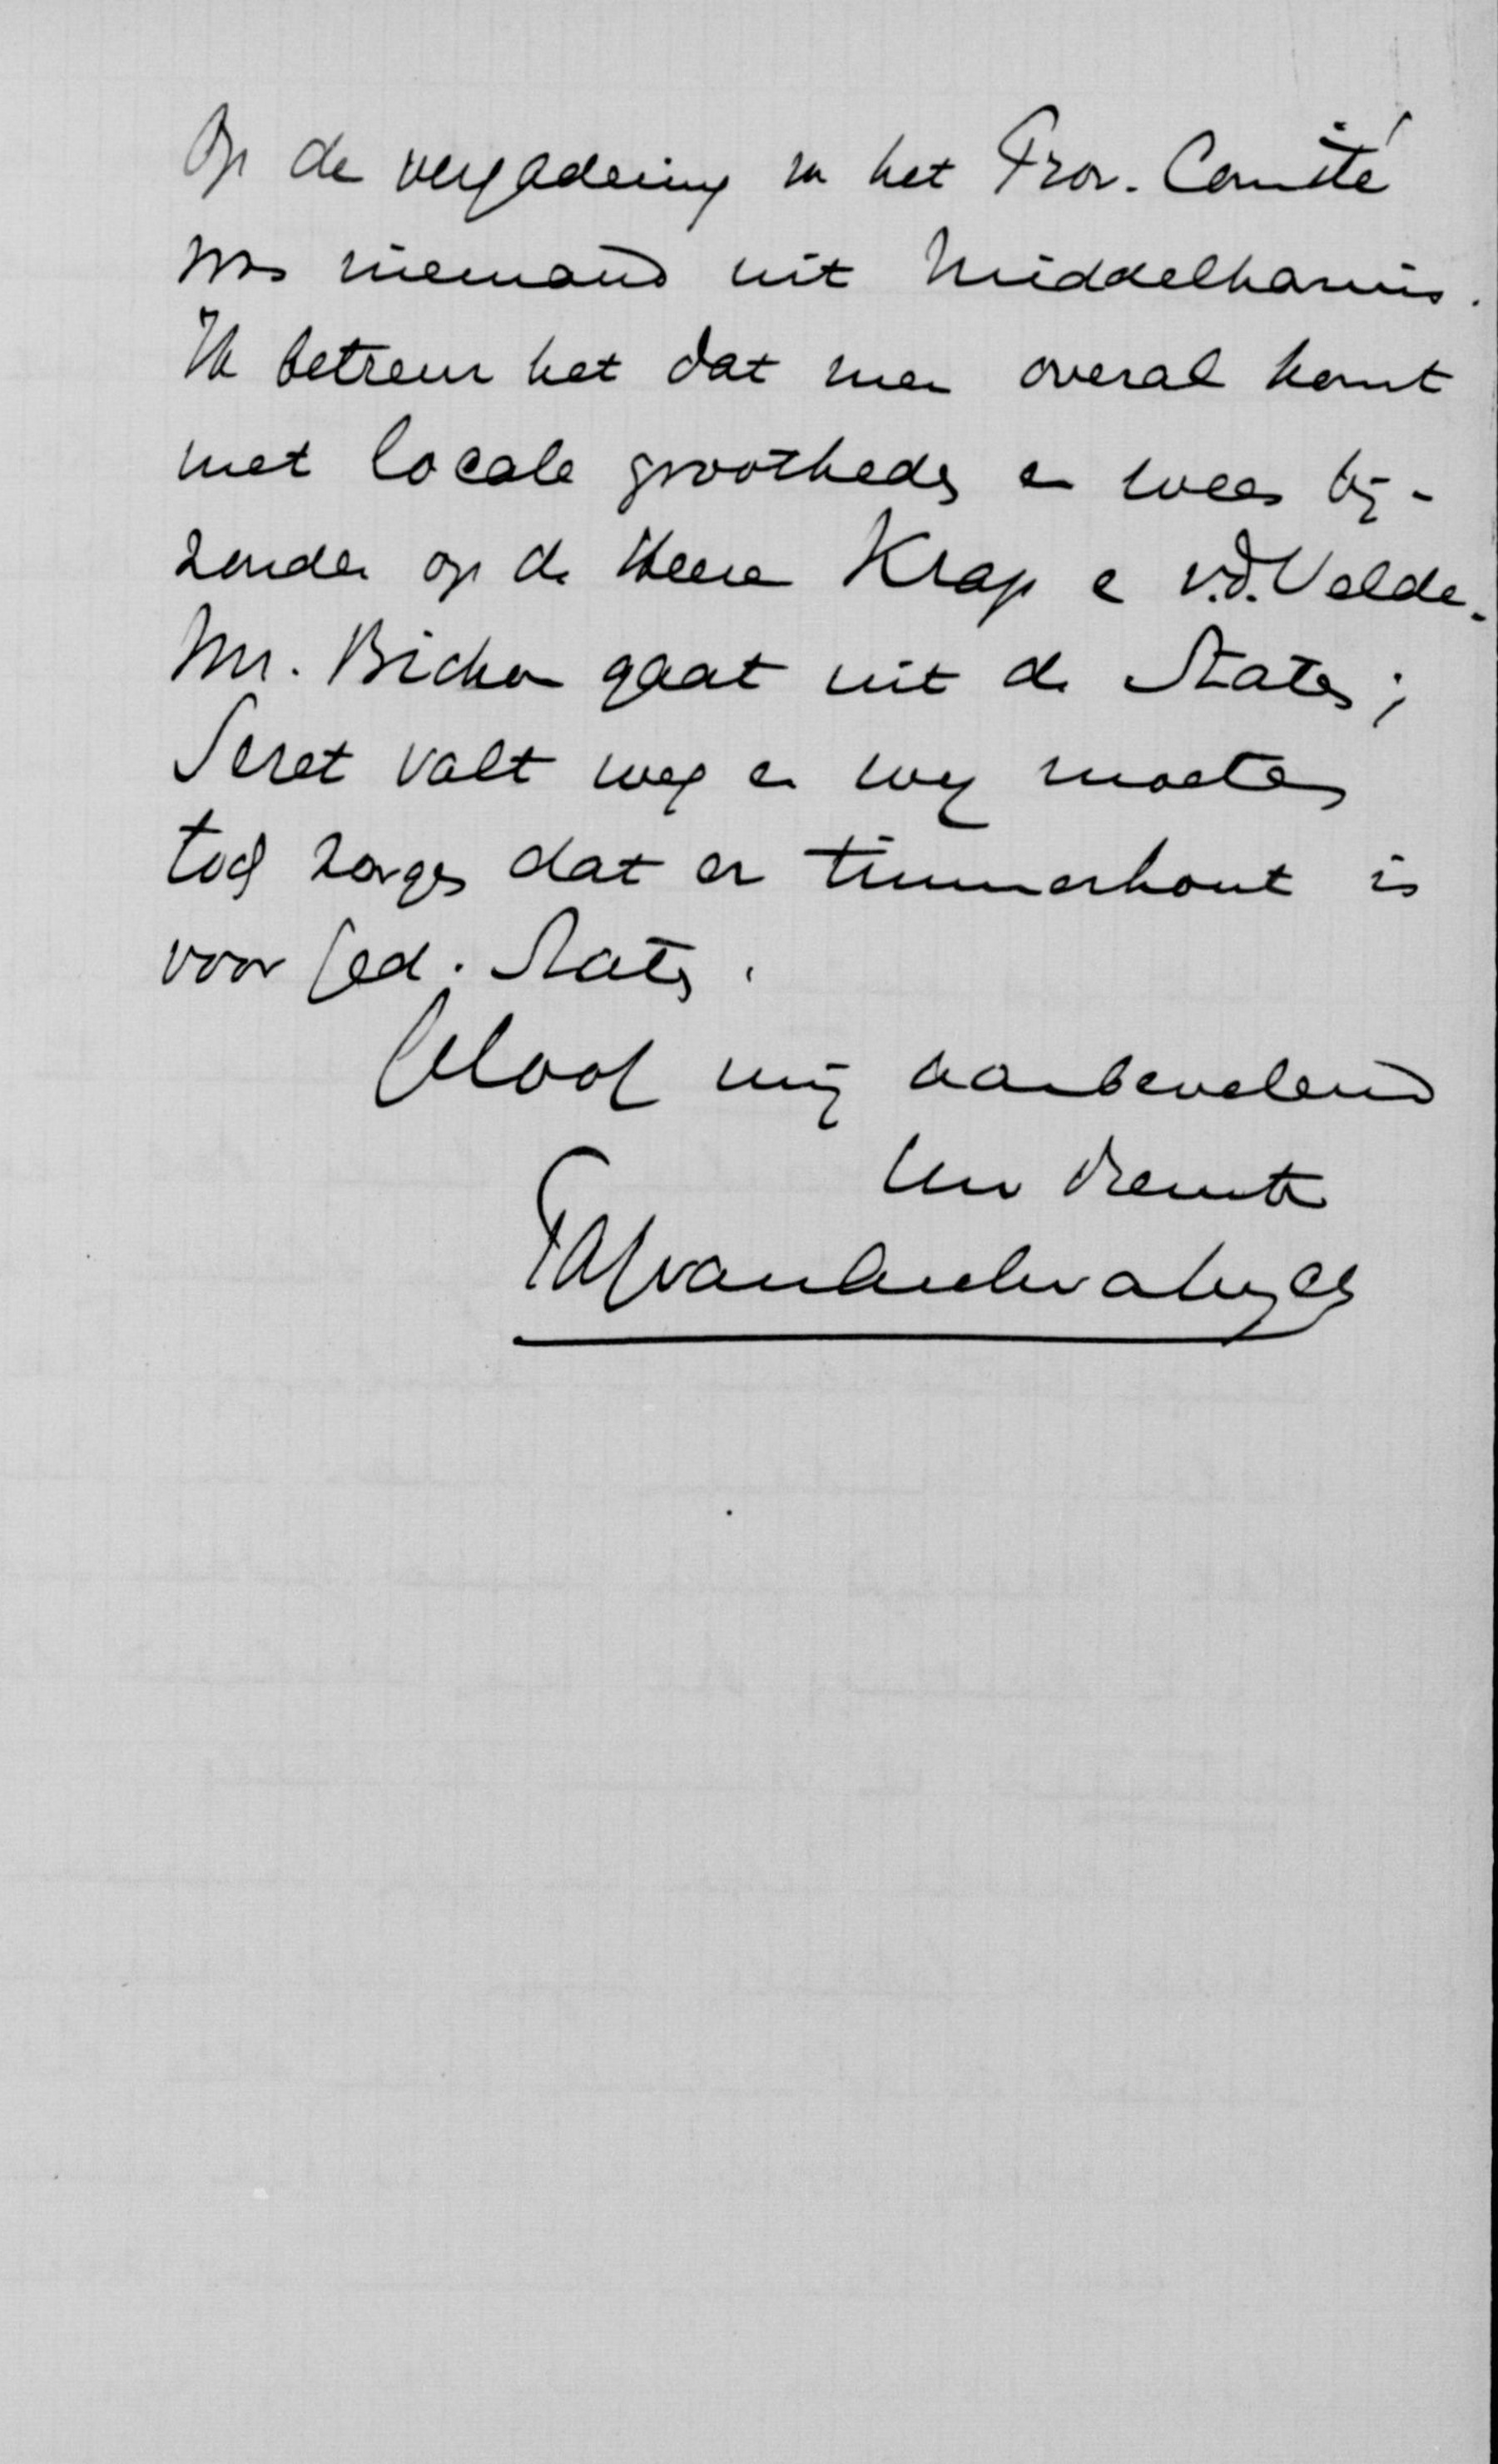 Op de vergadering van het Prov. Comité
was niemand uit Middelharnis.
Ik betreur het dat men overal komt
met locale grootheden en wees bij-
zonder op de Heeren Krap en v.d. Velde.
Mr. Bichon gaat uit de Staten;
Seret valt weg en wij moeten
toch zorgen dat er timmerhout is
voor Ged. Staten.
Geloof mij aanbevelend
Uw dienstv